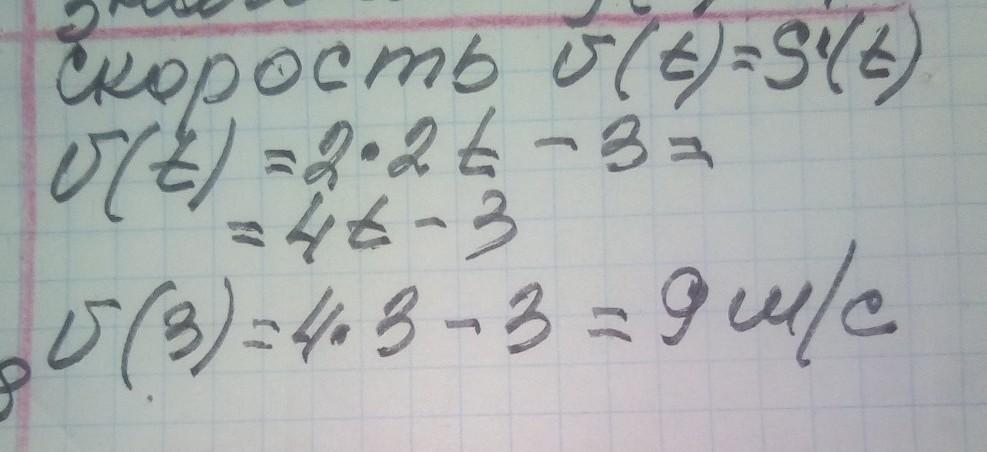 скорость v(t)=S'(t)
v(t)=2·2t-3=
=4t-3
v(3)=4·3-3=9м/с